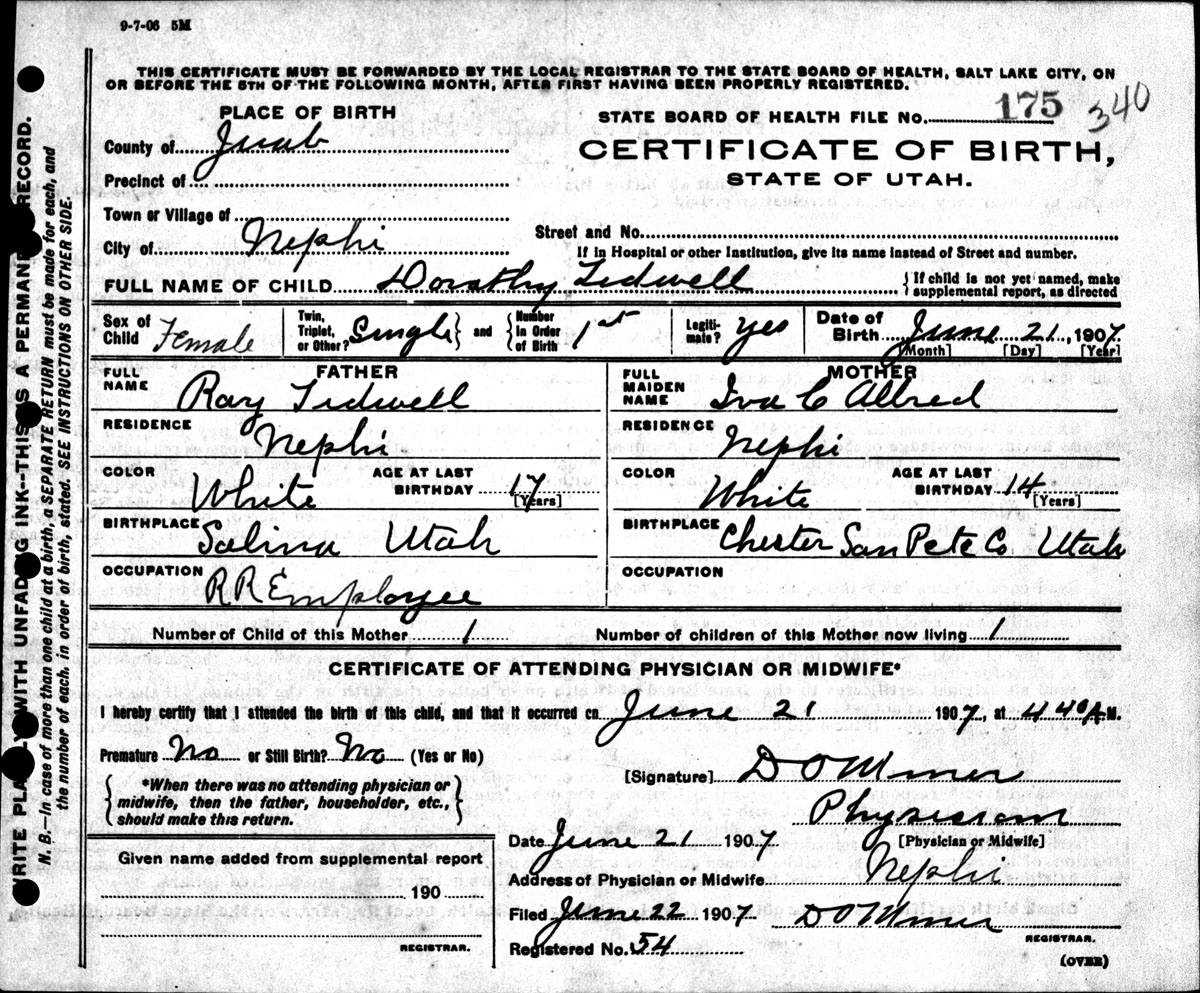 9-7-06 5M
THIS CERTIFICATE MUST BE FORWARDED BY THE LOCAL REGISTRAR TO THE STATE BOARD OF HEALTH, SALT LAKE CITY, ON
OR BEFORE THE 5TH OF THE FOLLOWING MONTH, AFTER FIRST HAVING BEEN PROPERLY REGISTERED.
PLACE OF BIRTH
STATE BOARD OF HEALTH FILE NO. 175 340
County of Juab
CERTIFICATE OF BIRTH,
Precinct of
STATE OF UTAH.
Town or Village of
Street and No.
City of Nephi
If in Hospital or other Institution, give its name instead of Street and number.
FULL NAME OF CHILD Dorothy Tidwell {If child is not yet named, make
supplemental report, as directed
Sex of Child Female
Twin, Triplet, or Other? Single } and { Number in Order of Birth 1st
Legiti-mate? yes
Date of Birth June 21, 1907
[Month] [Day] [Year]
FATHER
FULL NAME Ray Tidwell
RESIDENCE Nephi
COLOR White AGE AT LAST BIRTHDAY 17 [Years]
BIRTHPLACE Salina Utah
OCCUPATION R R Employee
MOTHER
FULL MAIDEN NAME Iva C Allred
RESIDENCE Nephi
COLOR White AGE AT LAST BIRTHDAY 14 [Years]
BIRTHPLACE Chester San Pete Co Utah
OCCUPATION
Number of Child of this Mother 1 Number of children of this Mother now living 1
CERTIFICATE OF ATTENDING PHYSICIAN OR MIDWIFE*
I hereby certify that I attended the birth of this child, and that it occurred on June 21 1907, at 4 40 A M.
Premature No or Still Birth? No (Yes or No)
{ *When there was no attending physician or
midwife, then the father, householder, etc.,
should make this return. }
[Signature] D O Miner
Physician
[Physician or Midwife]
Date June 21 1907
Address of Physician or Midwife Nephi
Filed June 22 1907 D O Miner
REGISTRAR.
Registered No. 54
(OVER)
Given name added from supplemental report
190
REGISTRAR.
WRITE PLAINLY WITH UNFADING INK--THIS IS A PERMANENT RECORD.
N. B.—In case of more than one child at a birth, a SEPARATE RETURN must be made for each, and
the number of each, in order of birth, stated. SEE INSTRUCTIONS ON OTHER SIDE.